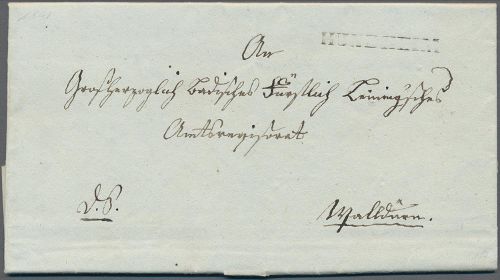 HUNDHEIM
An
Großherzoglich Badisches Fürstlich Leining'sches
Amtsregisorat
D.S.
Walldürn.